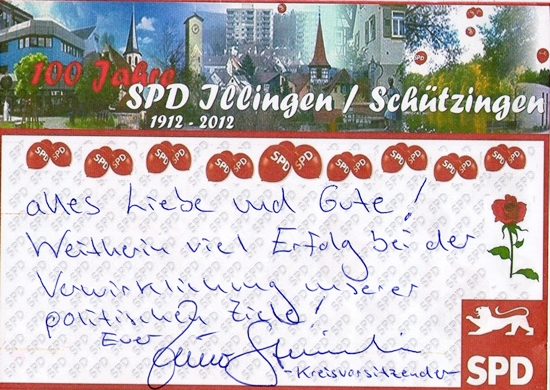 100 Jahre
SPD Illingen / Schützingen
1912 - 2012
SPD SPD SPD SPD SPD SPD SPD
alles Liebe und Gute!
Weiterhin viel Erfolg bei der
Verwirklichung unserer
politischen Ziele!
Euer
- Kreisvorsitzender -
SPD